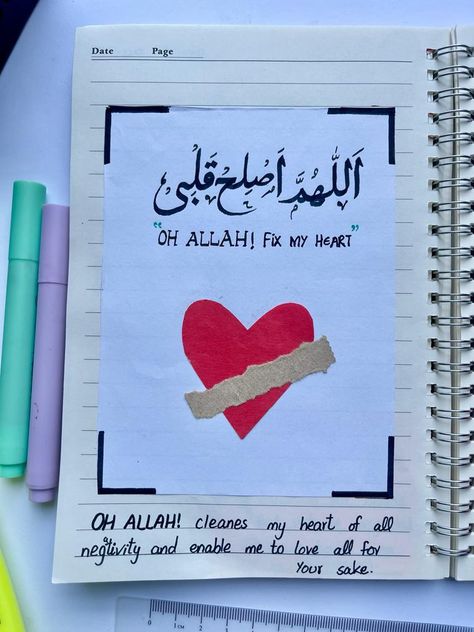 Date Page
اَللّٰهُمَّ اَصْلِحْ قَلْبِیْ
"OH ALLAH! FIX MY HEART"
OH ALLAH! cleanes my heart of all
negtivity and enable me to love all for
Your sake.
1 CM 2 3 4 5 6 7 8 9 10